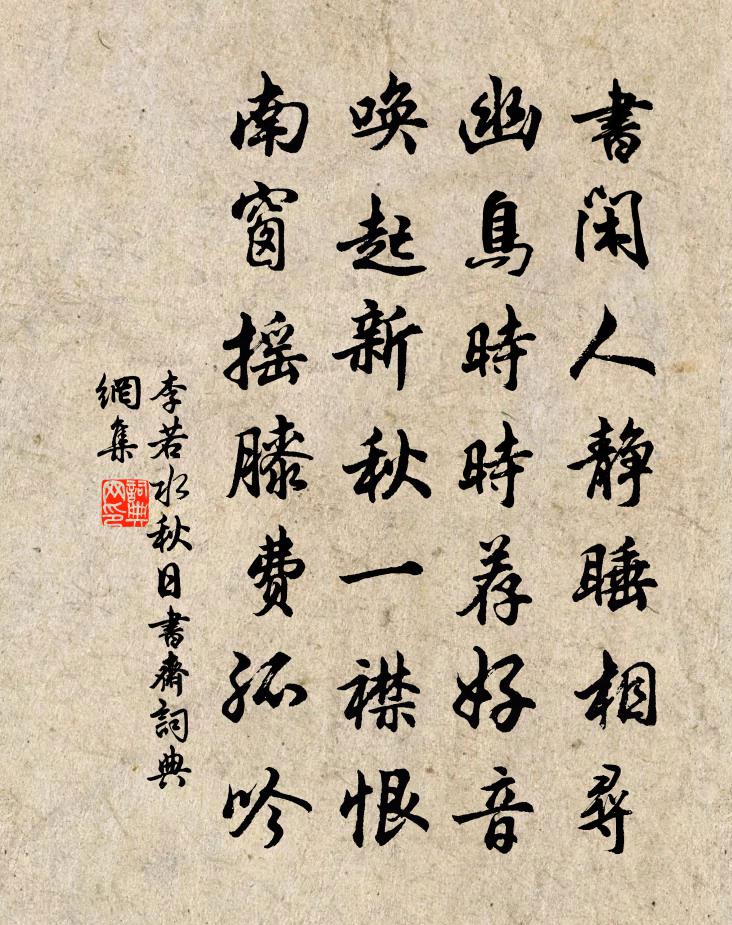 書閑人静睡相尋
幽鳥時時荐好音
喚起新秋一襟恨
南窗揺膝費孤吟
李若水秋日書齋詞典
網集
詞典
网印